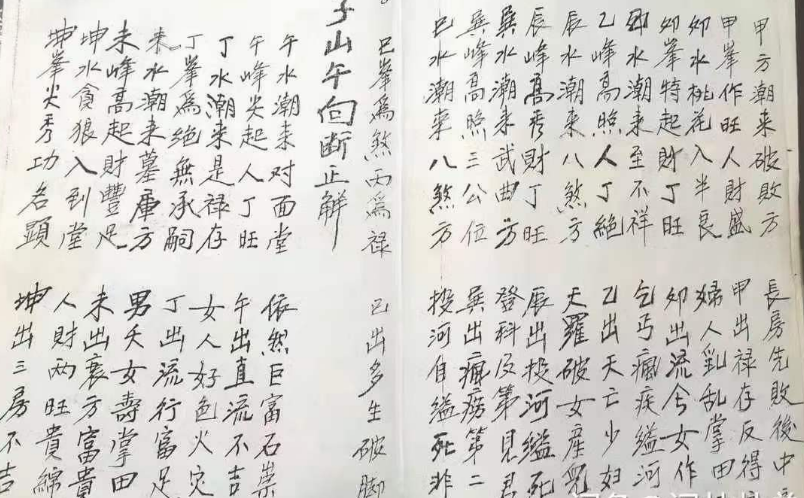 甲方潮来破敗方 長房先敗後中
甲峯作旺人財盛 甲出禄存反得
卯水桃花入半良 婦人乱掌田
卯峯特起財丁旺 卯出流兮女作
水潮来至不祥 乞丐瘋疾缢河
乙峰高照人丁絶 乙出夭亡少妇
辰水潮来八煞方 天羅破女産
辰峰高秀財丁旺 辰出投河缢死
巽水潮来武曲方 登科及第見君
巽峰高照三公位 巽出瘋癆第二
巳水潮来八煞方 投河自缢死非
巳峯為煞丙為禄 巳出多生破脚
子山午向断正解
午水潮来对面堂 依然巨富石崇
午峰尖起人丁旺 午出直流不吉
丁水潮来是禄存 女人好色火灾
丁峯為絶無承嗣 丁出流行富足
未水潮来墓庫方 男夭女壽掌田
未峰高起財豐足 未出衰方富貴
坤水貪狼入到堂 人財两旺貴綿
坤峯尖秀功名顯 坤出三房不吉